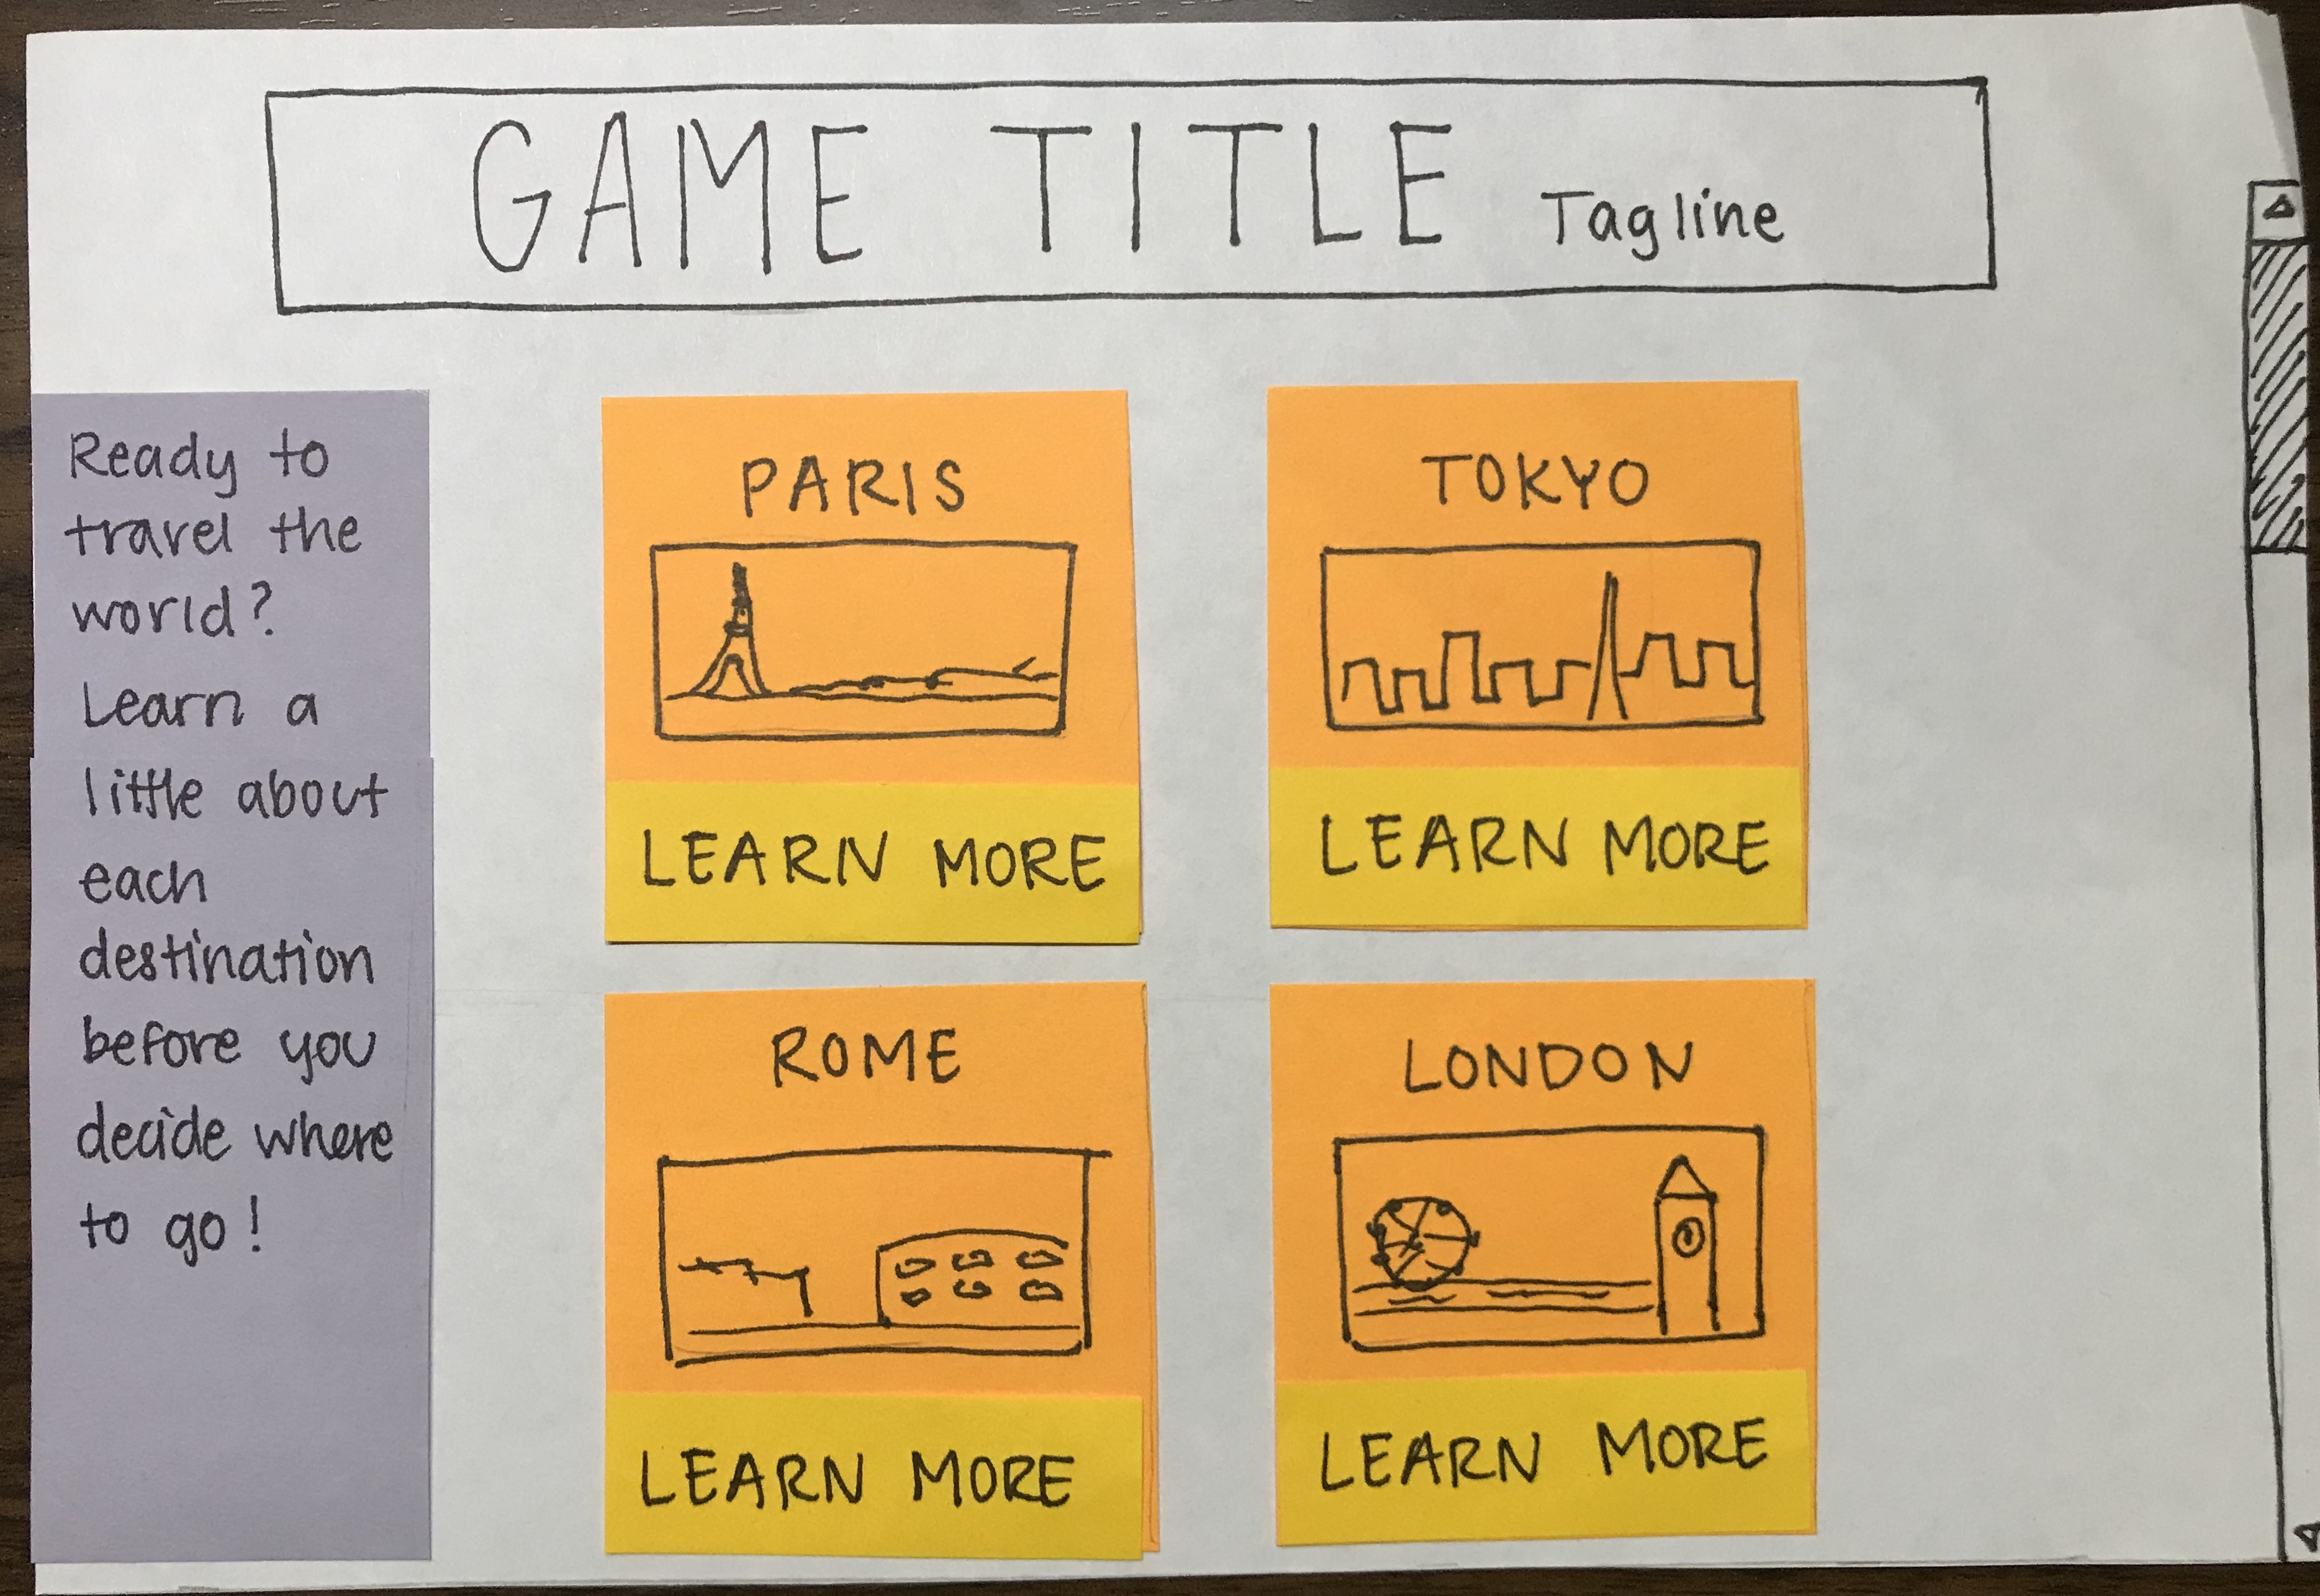 GAME TITLE Tagline
Ready to
travel the
world?
Learn a
little about
each
destination
before you
decide where
to go!
PARIS
LEARN MORE
TOKYO
LEARN MORE
ROME
LEARN MORE
LONDON
LEARN MORE